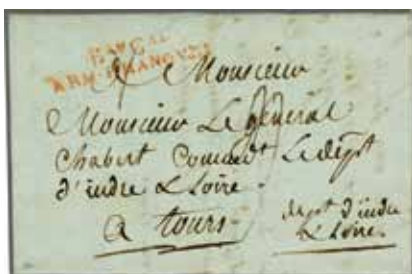 A Monsieur
Monsieur Le général
Chabert Command^t Le dépt
d'indre & Loire.
a tours
dept d'indre
& Loire.